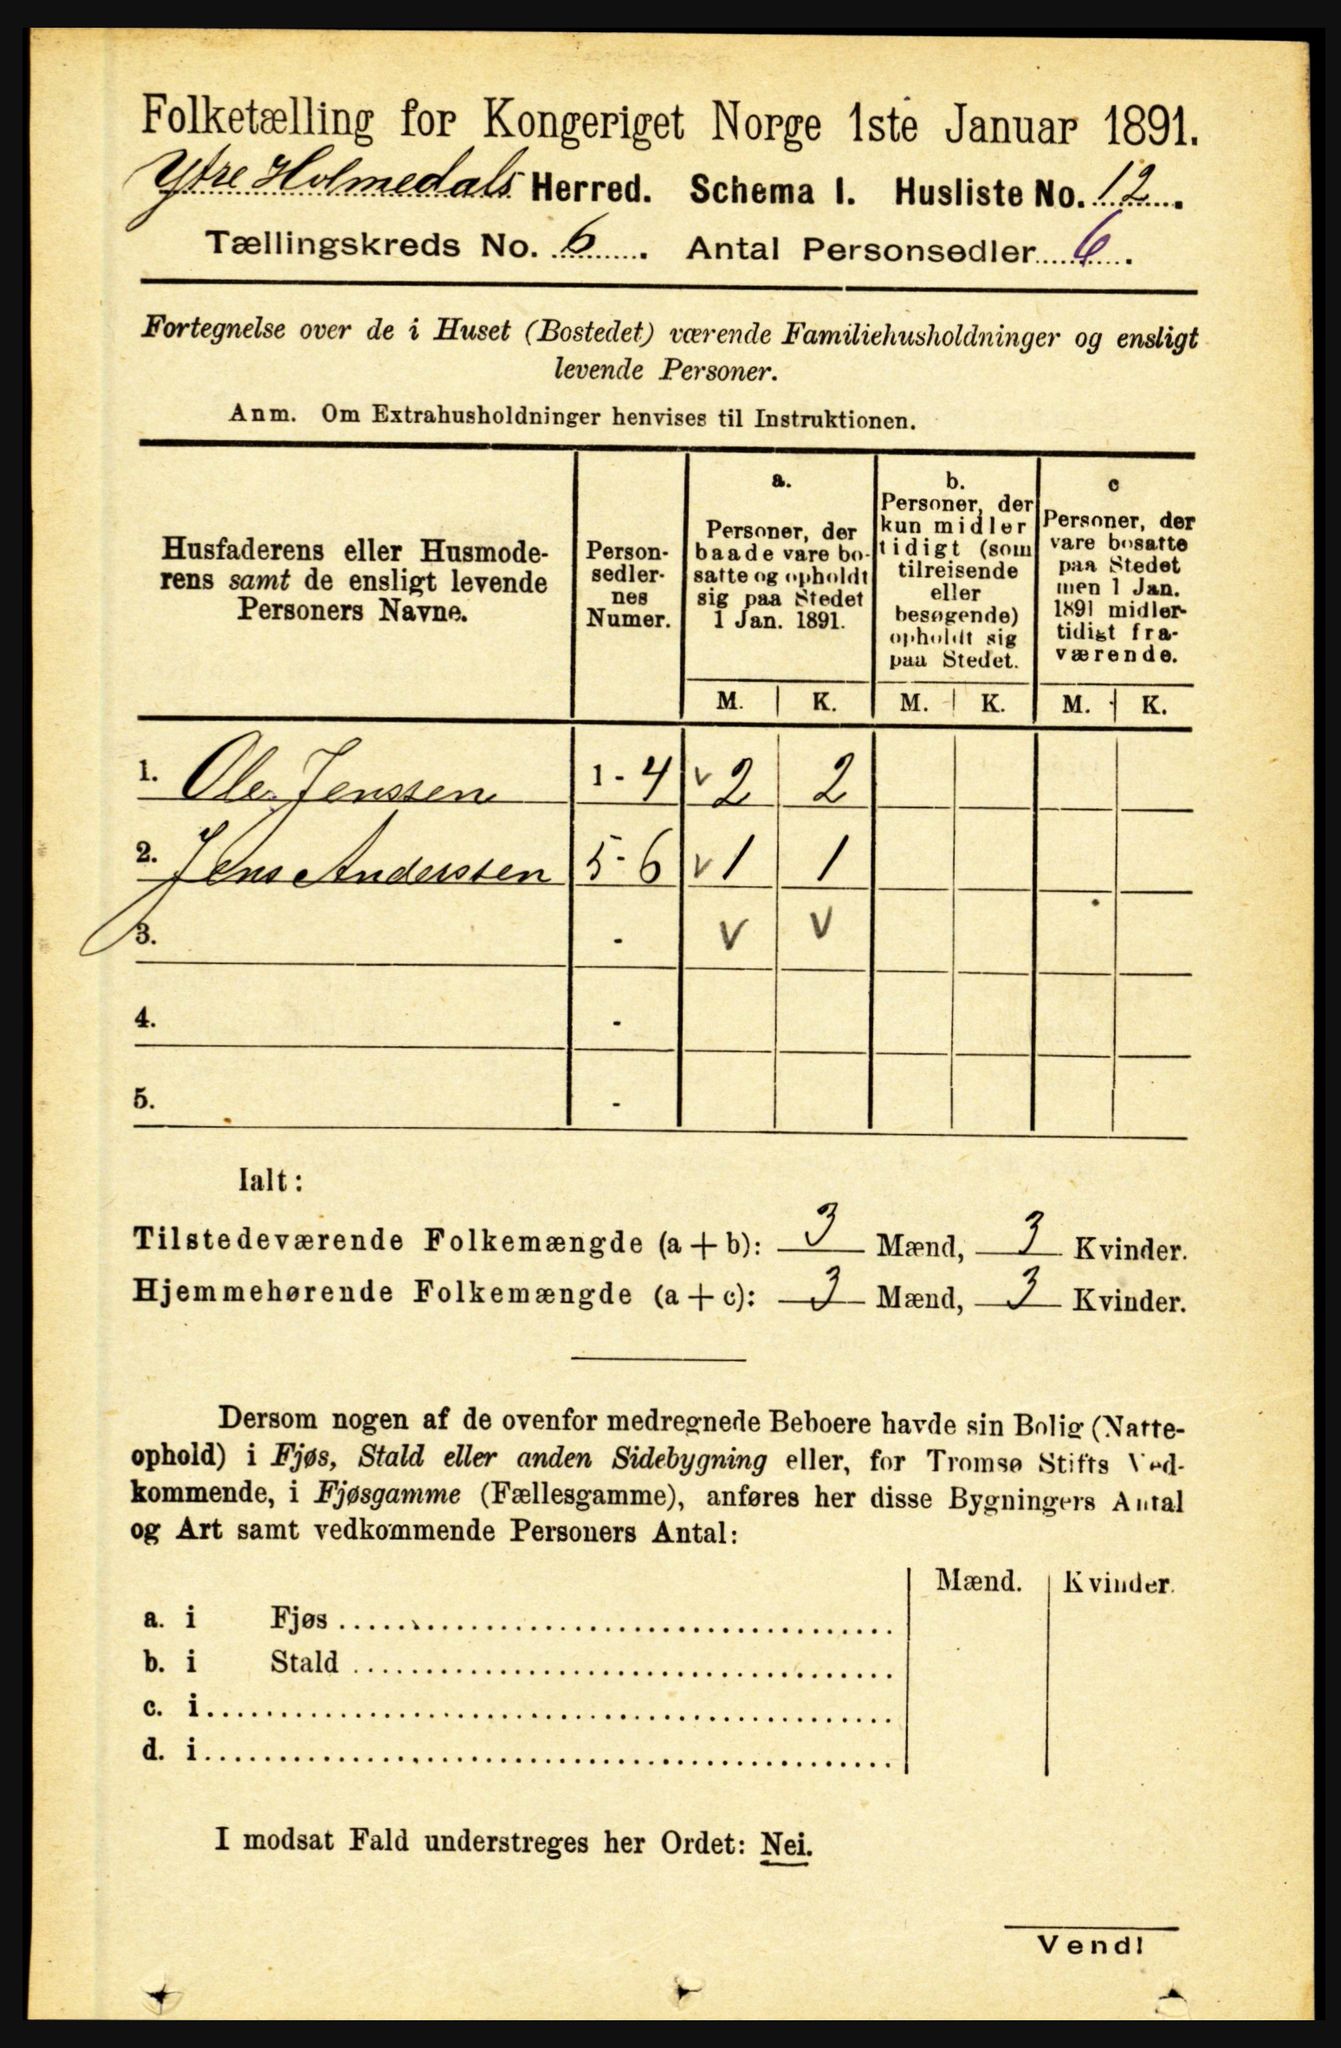 Folketælling for Kongeriget Norge 1ste Januar 1891.
Ytre Holmedals Herred. Schema I. Husliste No. 12.
Tællingskreds No. 6. Antal Personsedler 6.
Fortegnelse over de i Huset (Bostedet) værende Familiehusholdninger og ensligt
levende Personer.
Anm. Om Extrahusholdninger henvises til Instruktionen.
Husfaderens eller Husmode-
rens samt de ensligt levende
Personers Navne.
Person-
sedler-
nes
Numer.
a.
Personer, der
baade vare bo-
satte og opholdt
sig paa Stedet
1 Jan. 1891.
b.
Personer, der
kun midler
tidigt (som
tilreisende
eller
besøgende)
opholdt sig
paa Stedet.
c
Personer, der
vare bosatte
paa Stedet
men 1 Jan.
1891 midler-
tidigt fra-
værende.
M. K. M. K. M. K.
1. Ole Jenssen 1-4 v 2 2
2. Jens Anderssen 5-6 v 1 1
3. - v v
4. -
5. -
Ialt:
Tilstedeværende Folkemængde (a+b): 3 Mænd, 3 Kvinder.
Hjemmehørende Folkemængde (a+c): 3 Mænd, 3 Kvinder.
Dersom nogen af de ovenfor medregnede Beboere havde sin Bolig (Natte-
ophold) i Fjøs, Stald eller anden Sidebygning eller, for Tromsø Stifts Ved-
kommende, i Fjøsgamme (Fællesgamme), anføres her disse Bygningers Antal
og Art samt vedkommende Personers Antal:
Mænd. Kvinder.
a. i Fjøs
b. i Stald
c. i
d. i
I modsat Fald understreges her Ordet: Nei.
Vend!